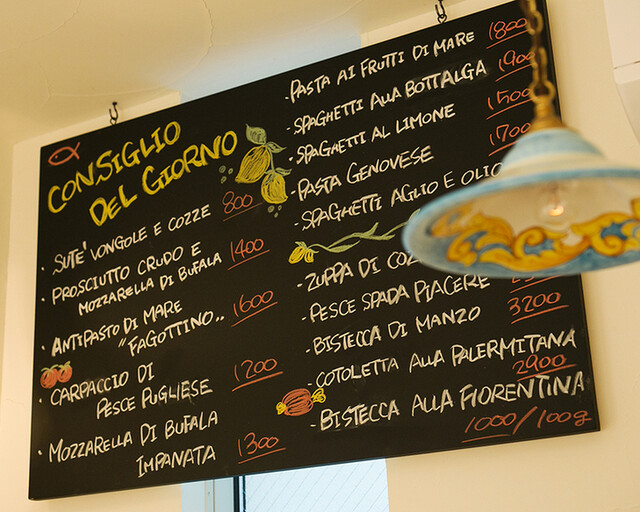 CONSIGLIO
DEL GIORNO
· SUTE' VONGOLE E COZZE 800
· PROSCIUTTO CRUDO E
MOZZARELLA DI BUFALA 1400
· ANTIPASTO DI MARE
"FAGOTTINO.. 1600
· CARPACCIO DI
PESCE PUGLIESE 1200
· MOZZARELLA DI BUFALA
IMPANATA 1300
· PASTA AI FRUTTI DI MARE 1800
· SPAGHETTI ALLA BOTTALGA 1900
· SPAGHETTI AL LIMONE 1500
· PASTA GENOVESE 1700
· SPAGHETTI AGLIO E OLIO
· ZUPPA DI
· PESCE SPADA PIACERE
· BISTECCA DI MANZO 3200
· COTOLETTA ALLA PALERMITANA
2900
· BISTECCA ALLA FIORENTINA
1000/100g